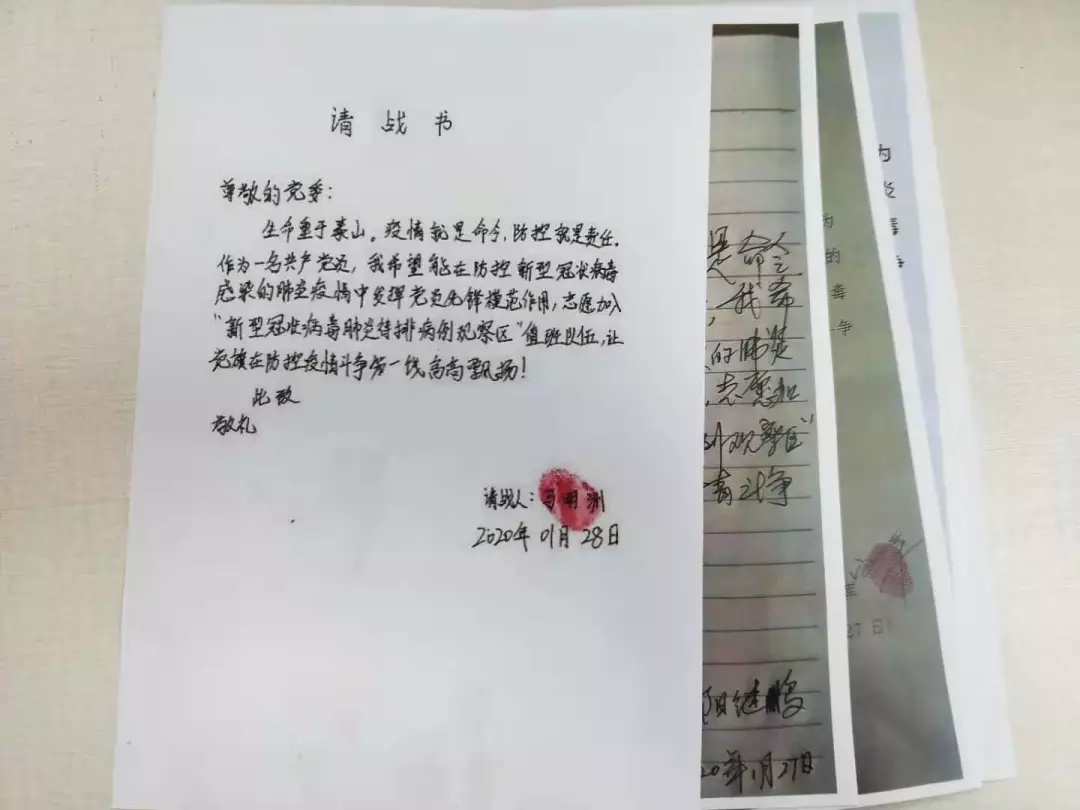 请战书
尊敬的党委：
生命重于泰山。疫情就是命令，防控就是责任。
作为一名共产党员，我希望能在防控新型冠状病毒
感染的肺炎疫情中发挥党员先锋模范作用，志愿加入
“新型冠状病毒肺炎待排病例观察区”值班队伍，让
党旗在防控疫情斗争第一线高高飘扬！
此致
敬礼
请战人：马明洲
2020年01月28日
是命令
，我希
的肺炎
，志愿加
例观察区”
情斗争
继鹏
20年1月27日
为
的
毒
争
27日
为
炎
毒